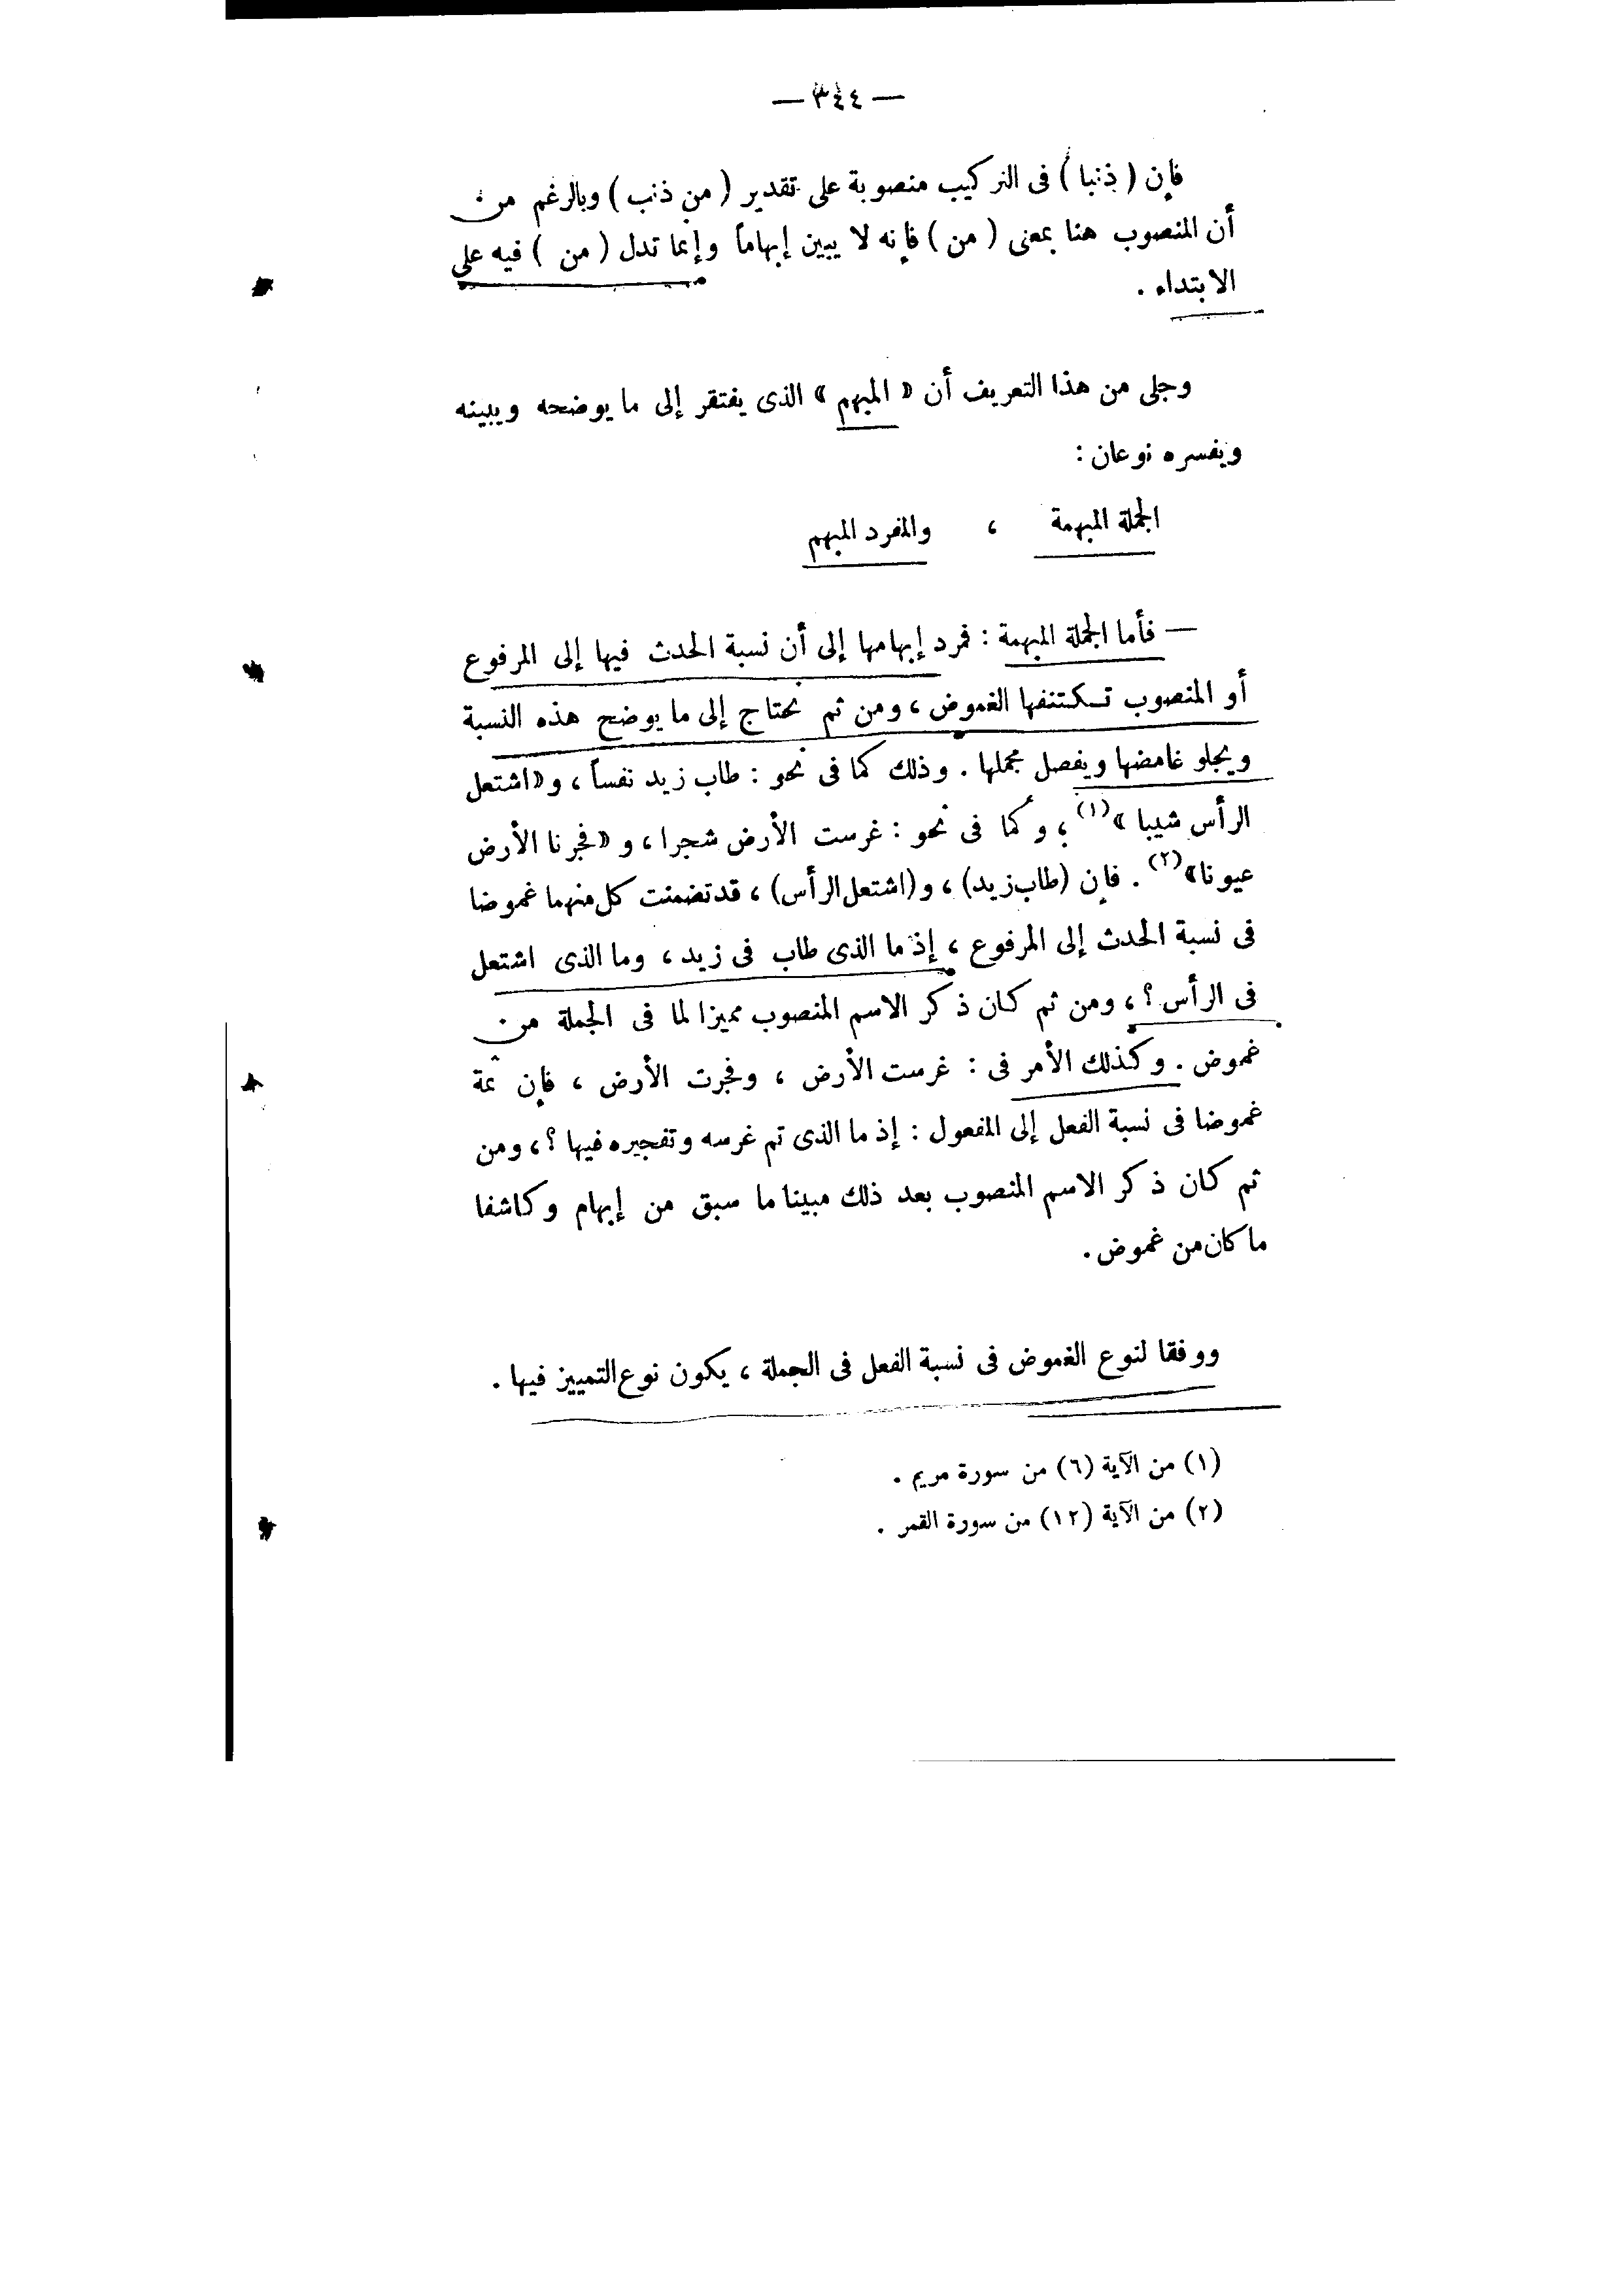 — ٣٤٤ —
فإن ( ذنبا ) فى التركيب منصوبة على تقدير ( من ذنب ) وبالرغم من
أن المنصوب هنا بمعنى ( من ) فإنه لا يبين إبهاماً وإنما تدل ( من ) فيه على
الابتداء .
وجلى من هذا التعريف أن « المبهم » الذى يفتقر إلى ما يوضحه ويبينه
ويفسره نوعان :
الجملة المبهمة ، والمفرد المبهم
— فأما الجملة المبهمة : فمرد إبهامها إلى أن نسبة الحدث فيها إلى المرفوع
أو المنصوب تكتنفها الغموض ، ومن ثم تحتاج إلى ما يوضح هذه النسبة
ويجلو غامضها ويفصل مجملها . وذلك كما فى نحو : طاب زيد نفساً ، و « اشتعل
الرأس شيبا » (١) ، وكما فى نحو : غرست الأرض شجرا ، و « فجرنا الأرض
عيونا » (٢) . فإن (طاب زيد) ، و (اشتعل الرأس) ، قد تضمنت كل منهما غموضا
فى نسبة الحدث إلى المرفوع ، إذ ما الذى طاب فى زيد ، وما الذى اشتعل
فى الرأس ؟ ، ومن ثم كان ذكر الاسم المنصوب مميزا لما فى الجملة من
غموض . وكذلك الأمر فى : غرست الأرض ، وفجرت الأرض ، فإن ثمة
غموضا فى نسبة الفعل إلى المفعول : إذ ما الذى تم غرسه وتفجيره فيها ؟ ، ومن
ثم كان ذكر الاسم المنصوب بعد ذلك مبينا ما سبق من إبهام وكاشفا
ما كان من غموض .
ووفقا لنوع الغموض فى نسبة الفعل فى الجملة ، يكون نوع التمييز فيها .
(١) من الآية (٦) من سورة مريم .
(٢) من الآية (١٢) من سورة القمر .